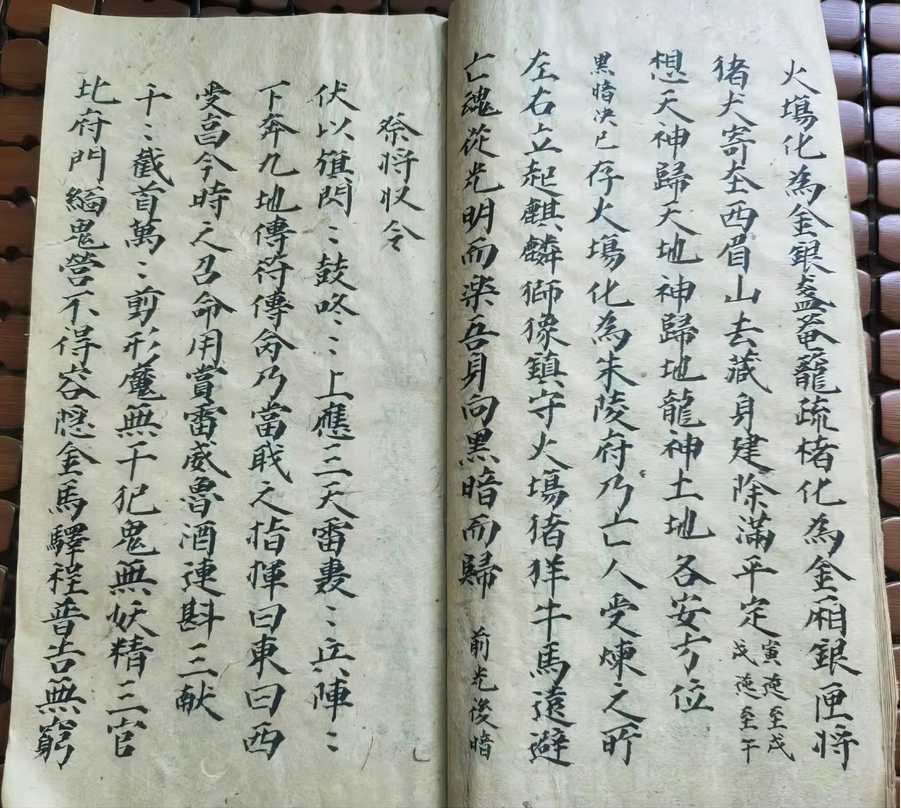 火塲化為金銀盝菴籠疏楮化為金廂銀匣将
猪犬寄在西眉山去藏身建除滿平定寅逆至戌戍逆至午
想天神歸天地神歸地龍神土地各安方位
黑暗决已存火塲化為朱陵府乃亡人受煉之所
左右立起麒麟獅㺔鎮守火塲猪羊牛馬遠避
亡魂從光明而楽吾身向黑暗而歸 前光後暗
祭将収令
伏以旗閃〻鼓咚〻上應三天雷轟〻兵陣〻
下奔九地傳符傳命乃當戝之指揮曰東曰西
受畗今時之召命用賞雷威魯酒連斟三献
千〻截首萬〻剪形魔無干犯鬼無妖精三官
北府門緬鬼营不得容隱金馬驛程普告無窮